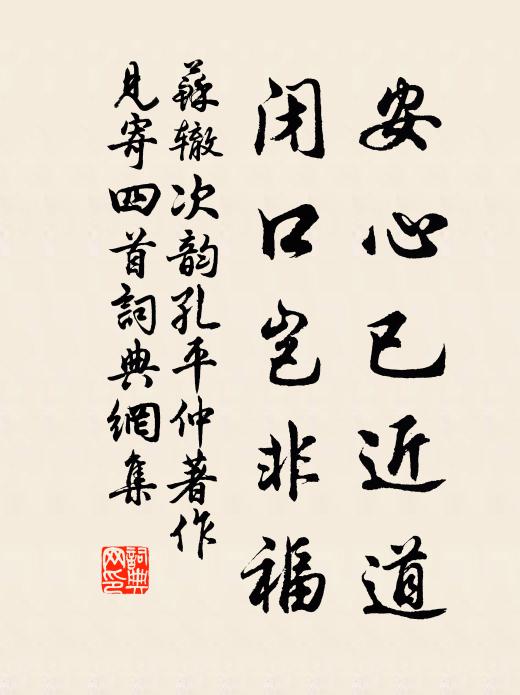 安心已近道
闭口岂非福
蘇辙次韵孔平仲著作
见寄四首詞典網集
詞典网印